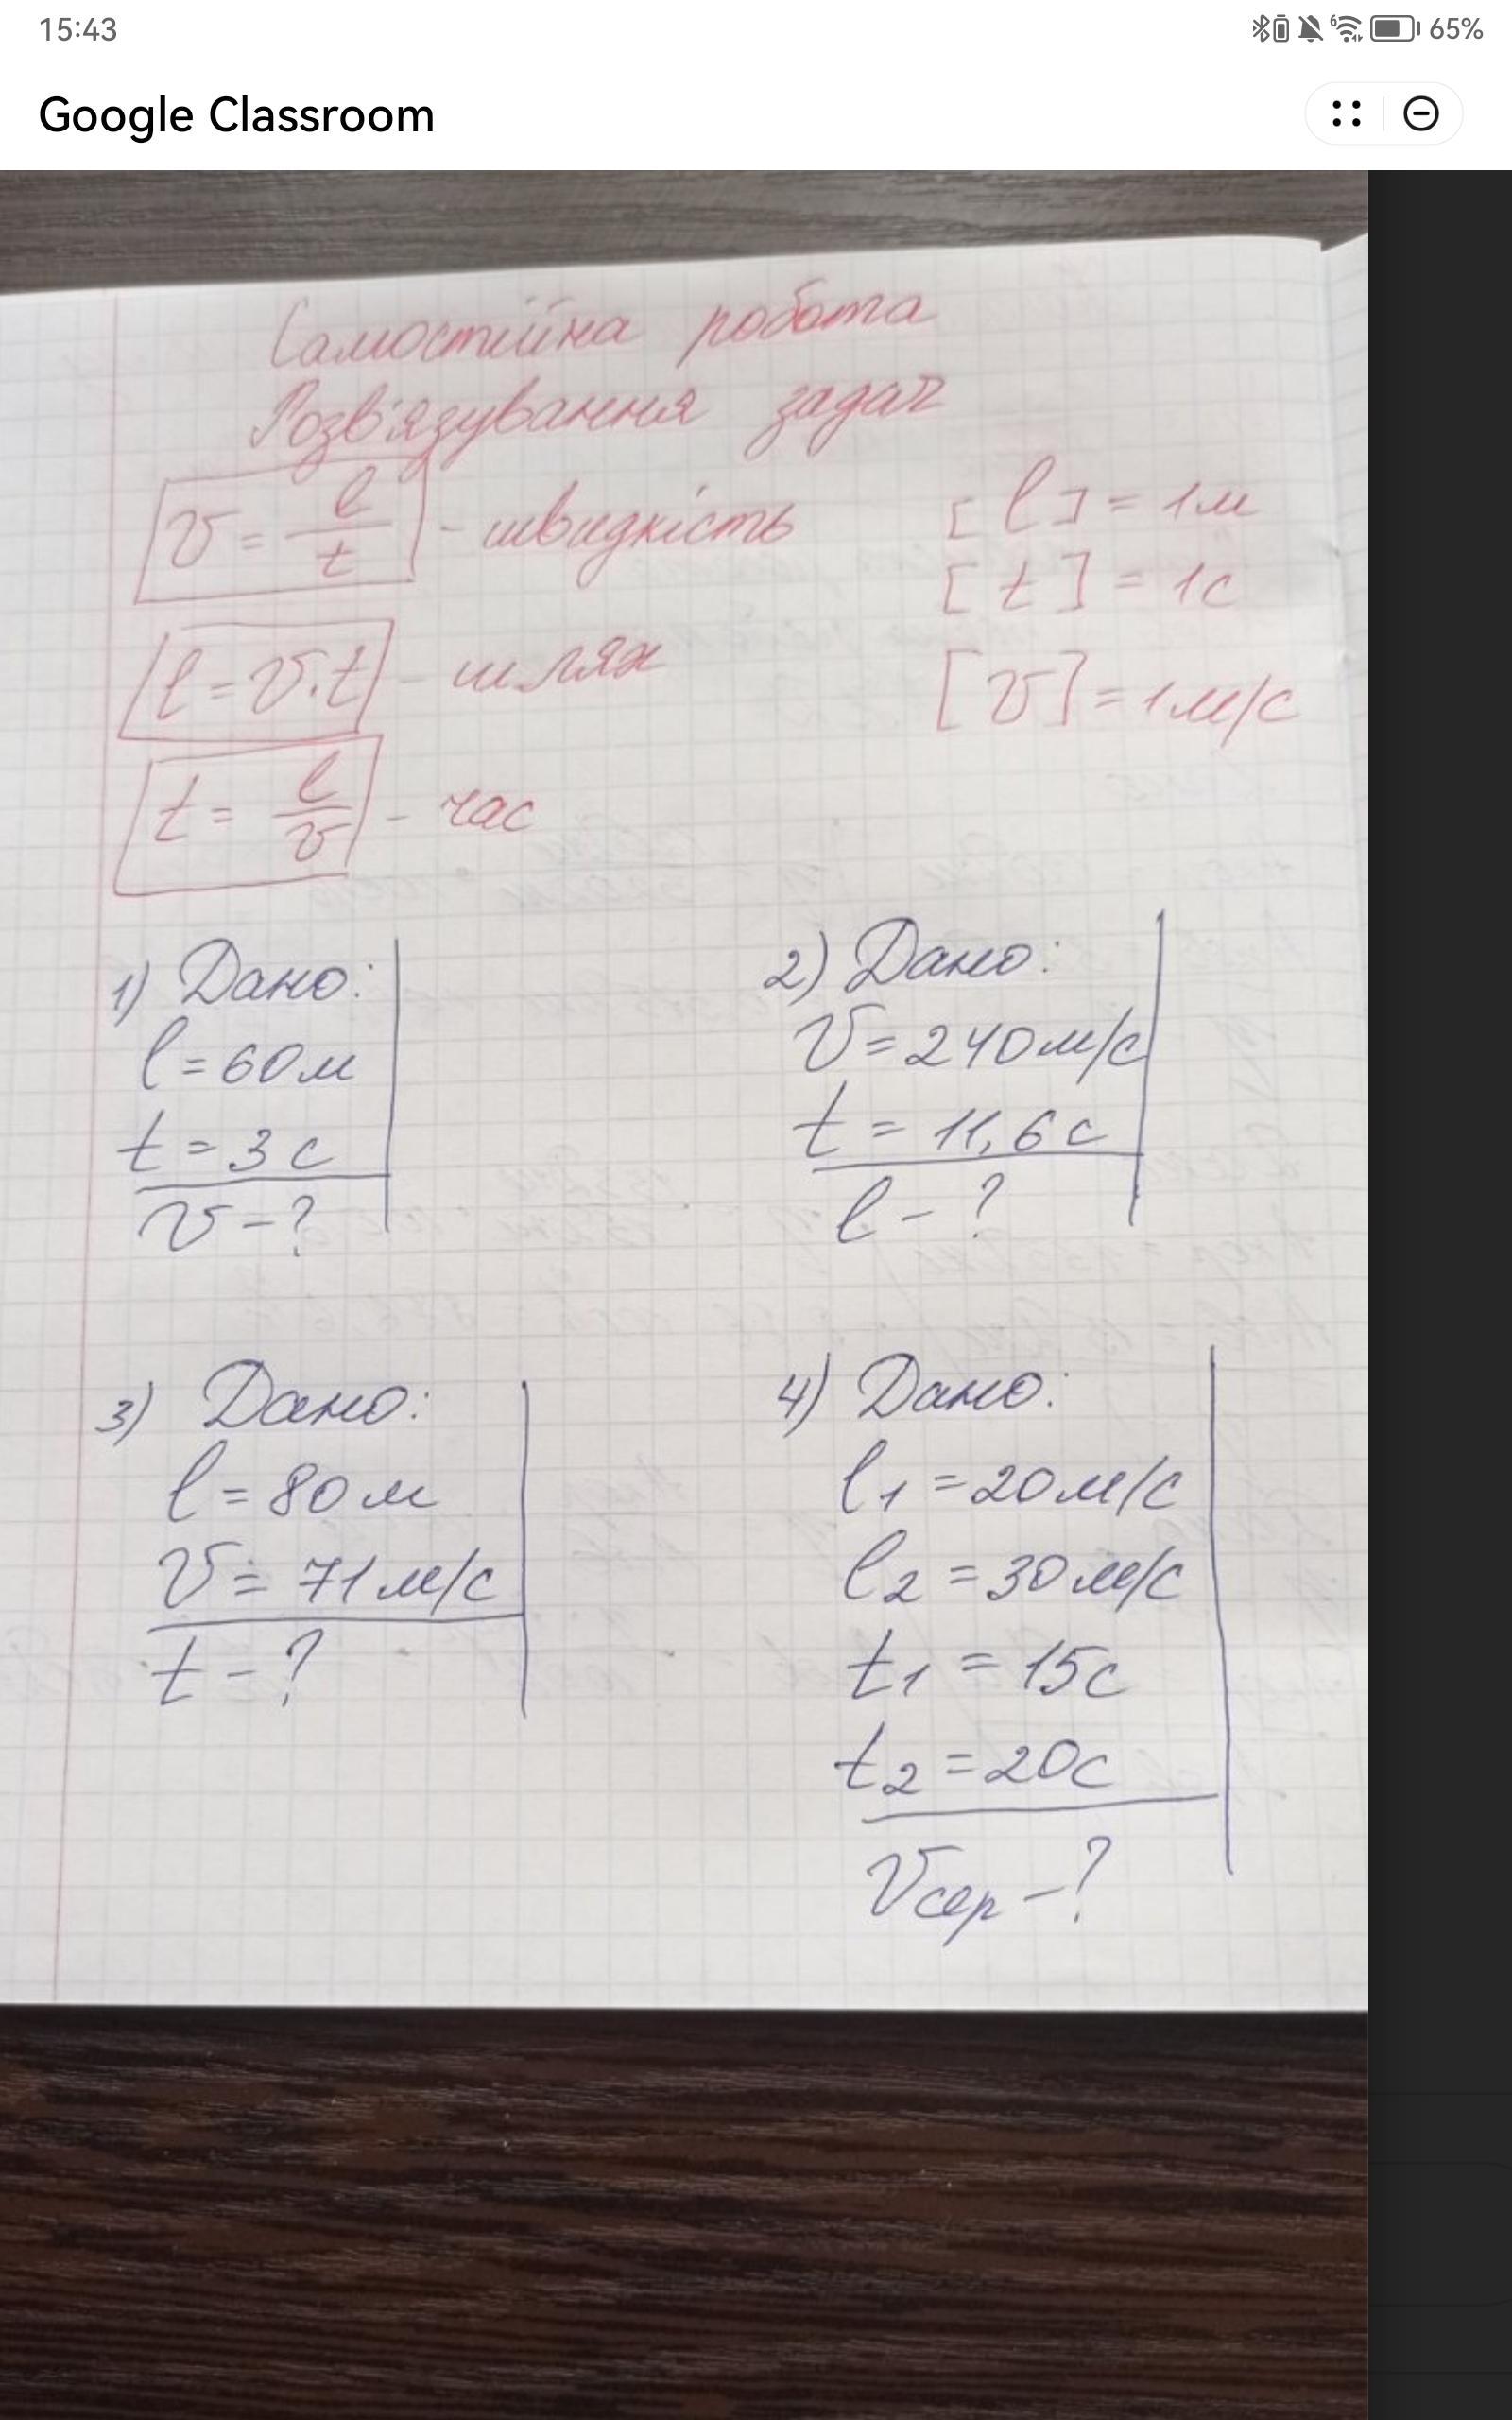 15:43
65%
Google Classroom
Самостійна робота
Розв'язування задач
v = l/t - швидкість
[l] = 1м
[t] = 1с
l = v·t - шлях
[v] = 1м/с
t = l/v - час
1) Дано:
l = 60м
t = 3с
v - ?
2) Дано:
v = 240м/с
t = 11,6с
l - ?
3) Дано:
l = 80м
v = 71м/с
t - ?
4) Дано:
l1 = 20м/с
l2 = 30м/с
t1 = 15с
t2 = 20с
vсер - ?